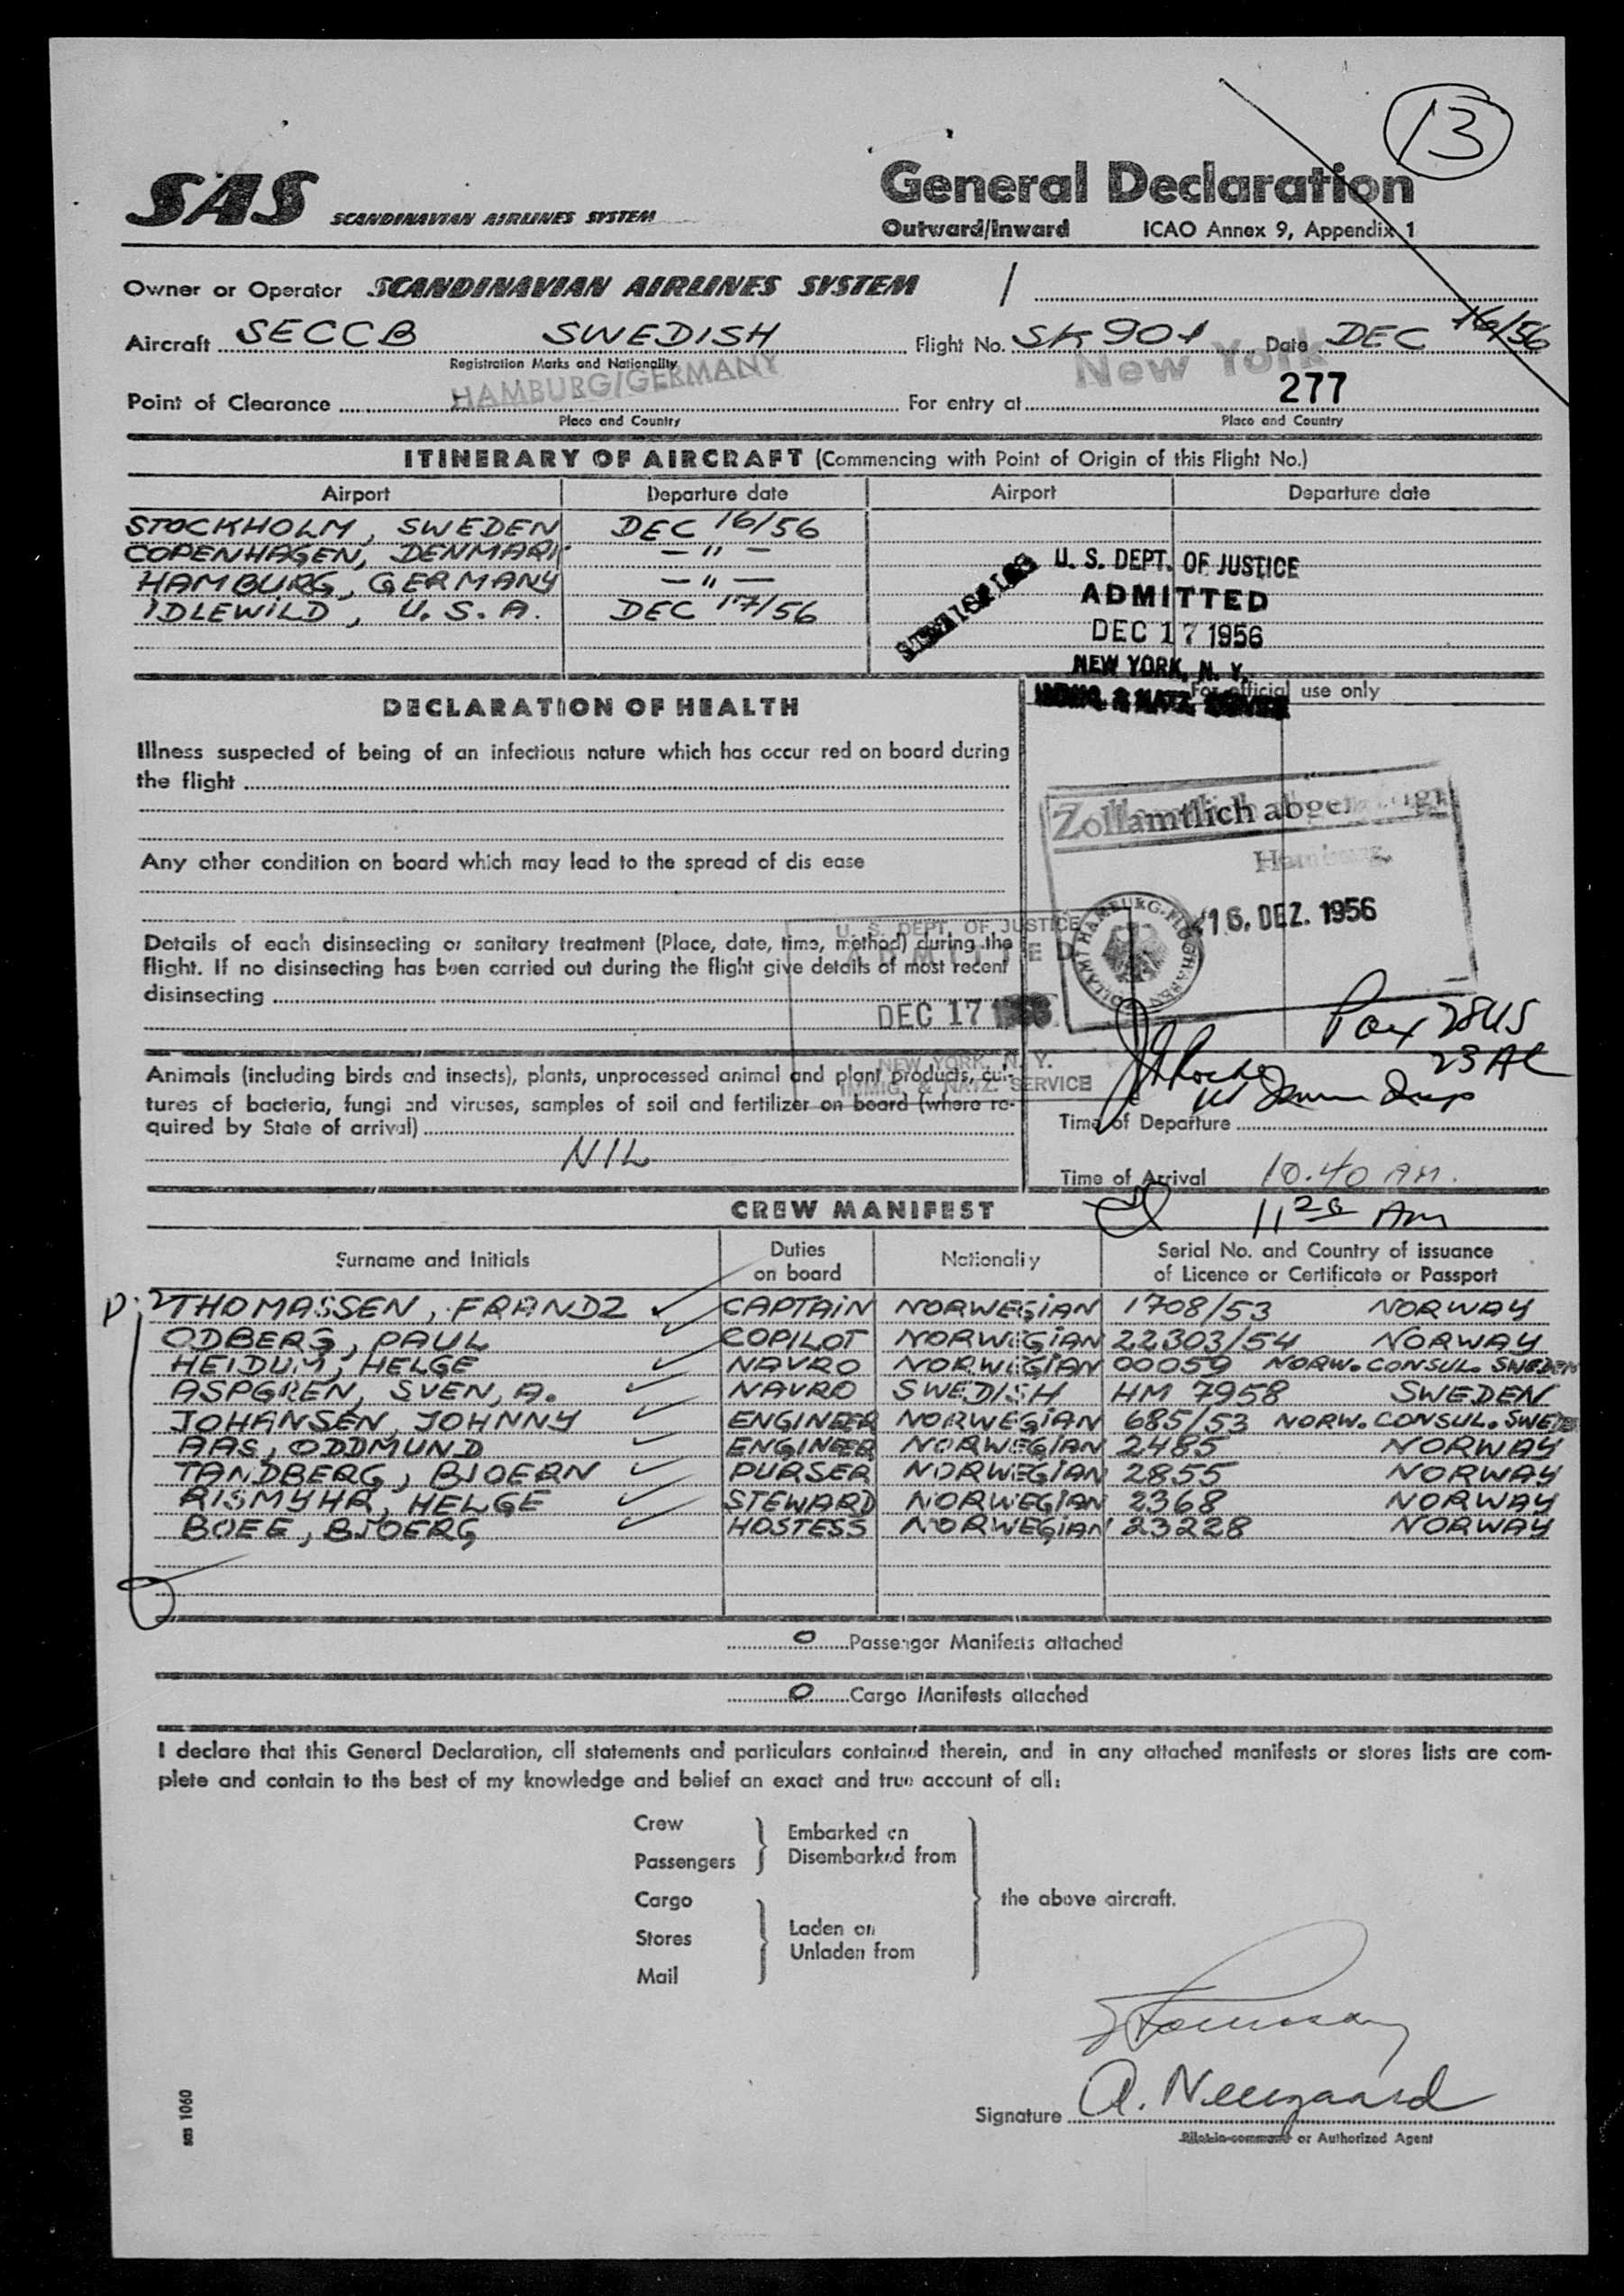 13
SAS SCANDINAVIAN AIRLINES SYSTEM
General Declaration
Outward/Inward ICAO Annex 9, Appendix 1
Owner or Operator SCANDINAVIAN AIRLINES SYSTEM /
Aircraft SECCB SWEDISH Flight No. SK 901 Date DEC 16/56
Registration Marks and Nationality
HAMBURG/GERMANY New York
277
Point of Clearance For entry at
Place and Country Place and Country
ITINERARY OF AIRCRAFT (Commencing with Point of Origin of this Flight No.)
Airport Departure date Airport Departure date
STOCKHOLM, SWEDEN DEC 16/56
COPENHAGEN, DENMARK — " —
HAMBURG, GERMANY — " —
IDLEWILD, U.S.A. DEC 17/56
U. S. DEPT. OF JUSTICE
ADMITTED
DEC 17 1956
NEW YORK, N. Y.
IMMIG. & NATZ. SERVICE
For official use only
DECLARATION OF HEALTH
Illness suspected of being of an infectious nature which has occur red on board during
the flight
Any other condition on board which may lead to the spread of dis ease
Details of each disinsecting or sanitary treatment (Place, date, time, method) during the
flight. If no disinsecting has been carried out during the flight give details of most recent
disinsecting
U. S. DEPT. OF JUSTICE
ADMITTED
DEC 17
NEW YORK, N. Y.
IMMIG. & NATZ. SERVICE
Zollamtlich
Hamburg
16. DEZ. 1956
ZOLLAMT HAMBURG-FLUGHAFEN
Pax 28 US
23 AL
Animals (including birds and insects), plants, unprocessed animal and plant products, cul-
tures of bacteria, fungi and viruses, samples of soil and fertilizer on board (where re-
quired by State of arrival)
NIL
Time of Departure
Time of Arrival 10.40 AM.
11 20 AM
CREW MANIFEST
Surname and Initials Duties on board Nationality Serial No. and Country of issuance of Licence or Certificate or Passport
THOMASSEN, FRANDZ CAPTAIN NORWEGIAN 1708/53 NORWAY
ODBERG, PAUL COPILOT NORWEGIAN 22303/54 NORWAY
HEIDUM, HELGE NAVRO NORWEGIAN 00059 NORW. CONSUL. SWEDEN
ASPGREN, SVEN, A. NAVRO SWEDISH HM 7958 SWEDEN
JOHANSEN, JOHNNY ENGINEER NORWEGIAN 685/53 NORW. CONSUL. SWEDEN
AAS, ODDMUND ENGINEER NORWEGIAN 2485 NORWAY
TANDBERG, BJOERN PURSER NORWEGIAN 2855 NORWAY
RISMYHR, HELGE STEWARD NORWEGIAN 2368 NORWAY
BOEE, BJOERG HOSTESS NORWEGIAN 23228 NORWAY
0 Passenger Manifests attached
0 Cargo Manifests attached
I declare that this General Declaration, all statements and particulars contained therein, and in any attached manifests or stores lists are com-
plete and contain to the best of my knowledge and belief an exact and true account of all:
Crew
Passengers
Embarked on
Disembarked from
Cargo
Stores
Mail
Laden on
Unladen from
the above aircraft.
Signature A. Neergaard
Pilot-in-command or Authorized Agent
sas 1060